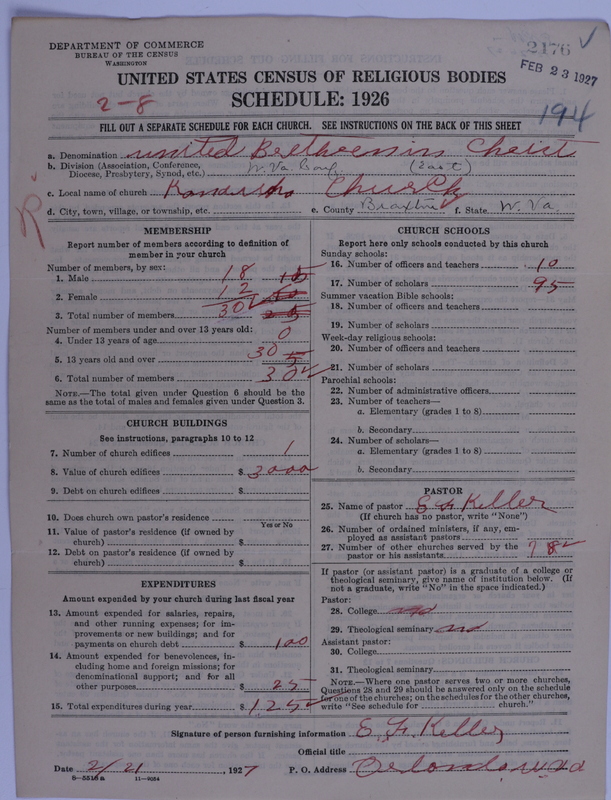 DEPARTMENT OF COMMERCE
BUREAU OF THE CENSUS
WASHINGTON
2176 ✓
FEB 23 1927
UNITED STATES CENSUS OF RELIGIOUS BODIES
2-8 SCHEDULE: 1926
194
FILL OUT A SEPARATE SCHEDULE FOR EACH CHURCH. SEE INSTRUCTIONS ON THE BACK OF THIS SHEET
a. Denomination united Brethren in Christ
b. Division (Association, Conference, Diocese, Presbytery, Synod, etc.) W. Va. Conf (East)
c. Local name of church Church
d. City, town, village, or township, etc. e. County Braxton f. State W. Va.
MEMBERSHIP
Report number of members according to definition of
member in your church
Number of members, by sex:
1. Male 18
2. Female 12
3. Total number of members 30
Number of members under and over 13 years old:
4. Under 13 years of age 0
5. 13 years old and over 30
6. Total number of members 30 ✓
NOTE.—The total given under Question 6 should be
same as the total of males and females given under Question 3.
CHURCH BUILDINGS
See instructions, paragraphs 10 to 12
7. Number of church edifices 1
8. Value of church edifices $ 3000
9. Debt on church edifices $
10. Does church own pastor's residence
Yes or No
11. Value of pastor's residence (if owned by
church) $
12. Debt on pastor's residence (if owned by
church) $
EXPENDITURES
Amount expended by your church during last fiscal year
13. Amount expended for salaries, repairs,
and other running expenses; for im-
provements or new buildings; and for
payments on church debt $ 100
14. Amount expended for benevolences, in-
cluding home and foreign missions; for
denominational support; and for all
other purposes $ 25
15. Total expenditures during year $ 125 ✓
CHURCH SCHOOLS
Report here only schools conducted by this church
Sunday schools:
16. Number of officers and teachers 10
17. Number of scholars 95
Summer vacation Bible schools:
18. Number of officers and teachers
19. Number of scholars
Week-day religious schools:
20. Number of officers and teachers
21. Number of scholars
Parochial schools:
22. Number of administrative officers
23. Number of teachers—
a. Elementary (grades 1 to 8)
b. Secondary
24. Number of scholars—
a. Elementary (grades 1 to 8)
b. Secondary
PASTOR
25. Name of pastor E F Keller
(If church has no pastor, write "None")
26. Number of ordained ministers, if any, em-
ployed as assistant pastors
27. Number of other churches served by the
pastor or his assistants
If pastor (or assistant pastor) is a graduate of a college or
theological seminary, give name of institution below. (If
not a graduate, write "No" in the space indicated.)
Pastor:
28. College no
29. Theological seminary no
Assistant pastor:
30. College
31. Theological seminary
NOTE.—Where one pastor serves two or more churches,
Questions 28 and 29 should be answered only on the schedule
for one of the churches; on the schedules for the other churches,
write "See schedule for church."
Signature of person furnishing information E. F. Keller
Official title
Date 2/21, 1927 P. O. Address Orlando, W Va
8—5518a 11—9084